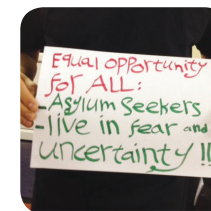 Equal opportunity
for ALL:
- Asylum Seekers
- live in fear and
uncertainty !!